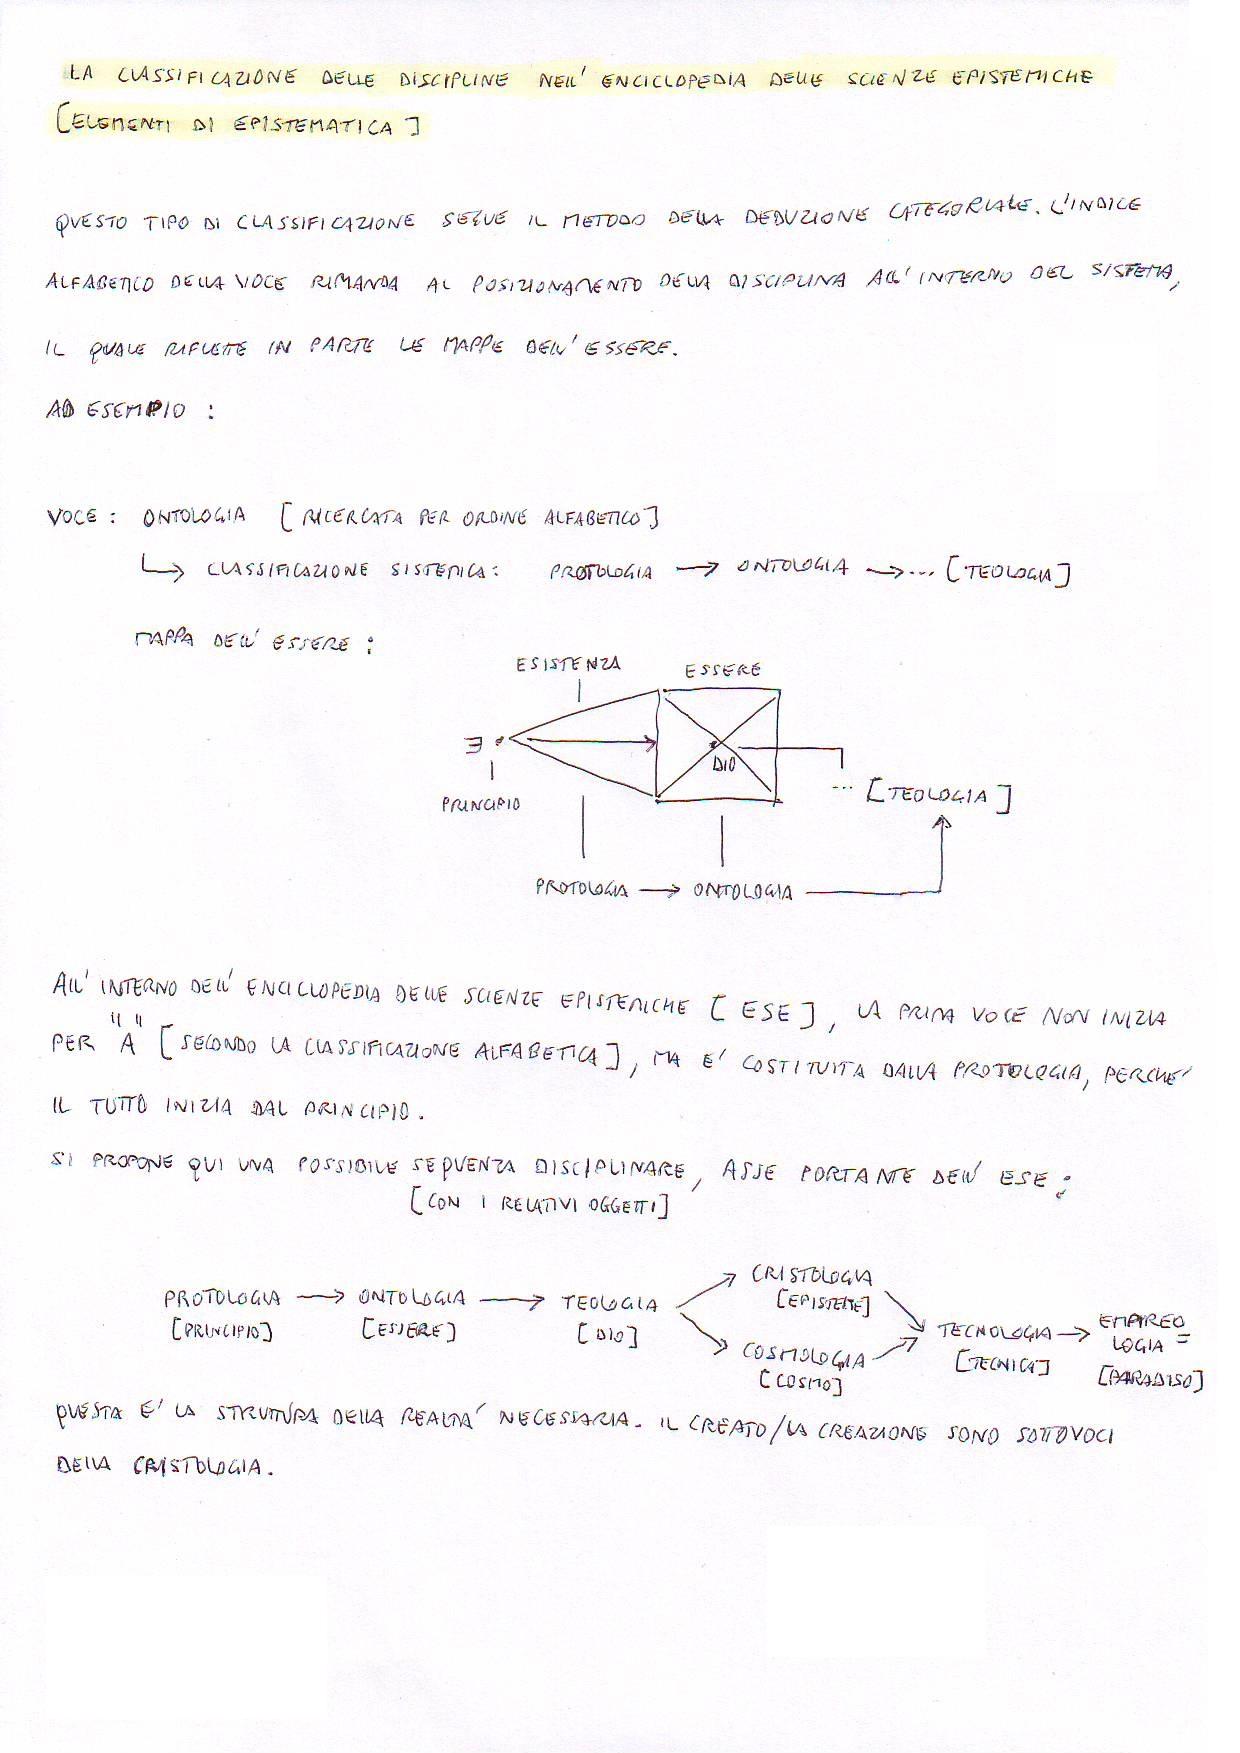 LA CLASSIFICAZIONE DELLE DISCIPLINE NELL' ENCICLOPEDIA DELLE SCIENZE EPISTEMICHE
[ELEMENTI DI EPISTEMATICA]
QUESTO TIPO DI CLASSIFICAZIONE SEGUE IL METODO DELLA DEDUZIONE CATEGORIALE. L'INDICE
ALFABETICO DELLA VOCE RIMANDA AL POSIZIONAMENTO DELLA DISCIPLINA ALL' INTERNO DEL SISTEMA,
IL QUALE RIFLETTE IN PARTE LE MAPPE DELL' ESSERE.
AD ESEMPIO :
VOCE : ONTOLOGIA [RICERCATA PER ORDINE ALFABETICO]
↳ CLASSIFICAZIONE SISTEMICA : PROTOLOGIA → ONTOLOGIA → ... [TEOLOGIA]
MAPPA DELL' ESSERE :
ESISTENZA ESSERE
∃
DIO
PRINCIPIO ... [TEOLOGIA]
PROTOLOGIA → ONTOLOGIA
ALL' INTERNO DELL' ENCICLOPEDIA DELLE SCIENZE EPISTEMICHE [ESE], LA PRIMA VOCE NON INIZIA
PER "A" [SECONDO LA CLASSIFICAZIONE ALFABETICA], MA E' COSTITUITA DALLA PROTOLOGIA, PERCHE'
IL TUTTO INIZIA DAL PRINCIPIO.
SI PROPONE QUI UNA POSSIBILE SEQUENZA DISCIPLINARE, ASSE PORTANTE DELL' ESE :
[CON I RELATIVI OGGETTI]
PROTOLOGIA → ONTOLOGIA → TEOLOGIA
[PRINCIPIO] [ESSERE] [DIO]
CRISTOLOGIA
[EPISTEME]
COSMOLOGIA
[COSMO]
TECNOLOGIA →
[TECNICA]
EMPIREO
LOGIA =
[PARADISO]
QUESTA E' LA STRUTTURA DELLA REALTA' NECESSARIA. IL CREATO/LA CREAZIONE SONO SOTTOVOCI
DELLA CRISTOLOGIA.